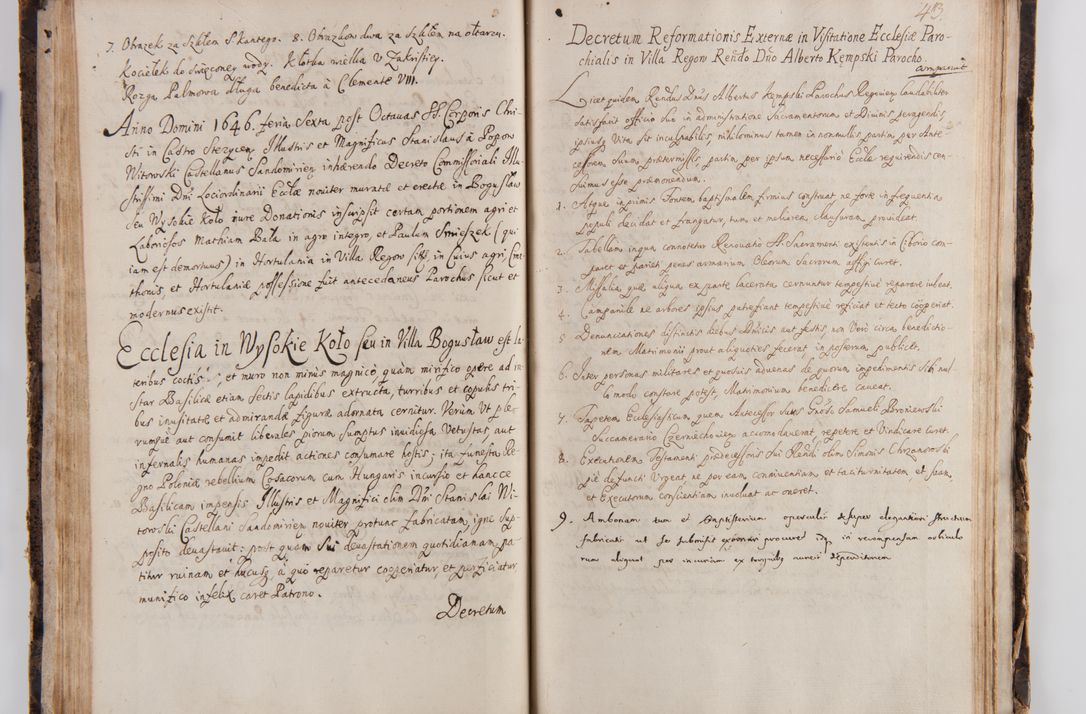 7. Obrazek za Szkłem S. kantego. 8. Obrazkow dwa za szkłem na ołtarzu.
Kociełek do Swięconey wody. Kłotka wielka v Zakristiey.
Rozga Palmowa długa benedicta à Clemente VIII.
Anno Domini 1646. feria Sexta post Octavas SS. Corporis Chri-
sti in Castro Stezycen Illustris et Magnificus Stanislaus à Popow
Witowski Castellanus Sandomirien inhærendo Decreto Commissoriali Illu-
strissimi Dni Lociordinarii Ecclæ noviter muratæ et erectæ in Boguslaw
seu Wysokie Koło iure Donationis inscripsit certam portionem agri et
Laboriosos Mathiam Bała in agro integro, et Paulum Smieszek (qui
iam est demortuus) in Hortulania in Villa Regow sitis, in cuius agri, Cme-
thonis, et Hortulaniæ possessione fuit antecedaneus Parochus sicut et
modernus existit.
Ecclesia in Wysokie Koło seu in Villa Bogusław est la-
teribus coctis, et muro non minus magnico, quàm mirifico opere ad in-
star Basilicæ etiam Sectis lapidibus extructa, turribus et copulis tri-
bus inusitatæ et admirandæ figuræ adornata cernitur. Verum Vt ple-
rumque aut consumit liberales piorum sumptus invidiosa Vetustas, aut
infernalis humanas impedit actiones consumare hostis; ita funesta Re-
gno Poloniæ rebellium Cosacorum cum Hungaris incursio et hancce
Basilicam impensis Illustris et Magnifici olim Dni Stanislai Wi-
towski Castellani Sandomirien noviter protunc fabricatam, igne sup-
posito devastavit: post quam sui devastationem quotidianam pa-
titur ruinam et hucusq, à quo reparetur cooperiatur, et perficiatur
munifico infelix caret Patrono.
Decretum
43.
Decretum Reformationis Externæ in Visitatione Ecclesiæ Paro-
chialis in Villa Regow Rendo Dno Alberto Kempski Parocho
comparuit
Licet quidem Rendus Dnus Albertus Kempski Parochus Regovien laudabiliter
satisfacit officio suo in administratione Sacramentorum et Divinis peragendis,
ipsiusq Vita sit inculpabilis, nihilominus tamen in nonnullis, partim per Ante-
cessorem Suum prætermissis, partim per ipsum necessariò Ecclæ requirendis cen-
suimus esse præmonendum.
1. Atque inprimis Fontem baptismalem firmius construat, ne forte in frequentia
populi decidat et frangatur, tum et meliorem clausuram provideat.
2. Tabellam inqua connotetur Renovatio SS. Sacramenti existentis in Ciborio com-
paret et parieti penes armarium Oleorum Sacrorum affigi curet.
3. Missalia, quæ aliqua ex parte lacerata cernuntur tempestivè reparare iubeat.
4. Campanile ne arbores ipsius putrefiant tempestivè reficiat et tecto cooperiat.
5 Denunciationes distinctis diebus Dnicis aut festis, non Verò circa benedictio-
nem Matrimonii prout aliquoties fecerat, in posterum publicet.
6. Inter personas militares et quosvis advenas de quorum impedimentis sibi nul-
lo modo constare potest, Matrimonium benedicere caveat.
7. Tapetem Ecclesiasticum, quem Antecessor Suus Gnoso Samueli Boroniewski
Succamerario Czerniechovien acomodaverat, repetere et Vindicare curet.
8. Executionem Testamenti prædecessoris Sui Rendi olim Simonis Chrzanowski
piè defuncti Vrgeat ne per eam conniventiam et taciturnitatem, et suam,
et Executorum conscientiam involvat ac oneret.
9. Ambonam tum et Baptisterium operculo desuper elegantiori structura
fabricari ut se submisit exornari procuret idq in recompensam orbiculo
rum aliquot per incuriam ex turribus aurei deperditorum